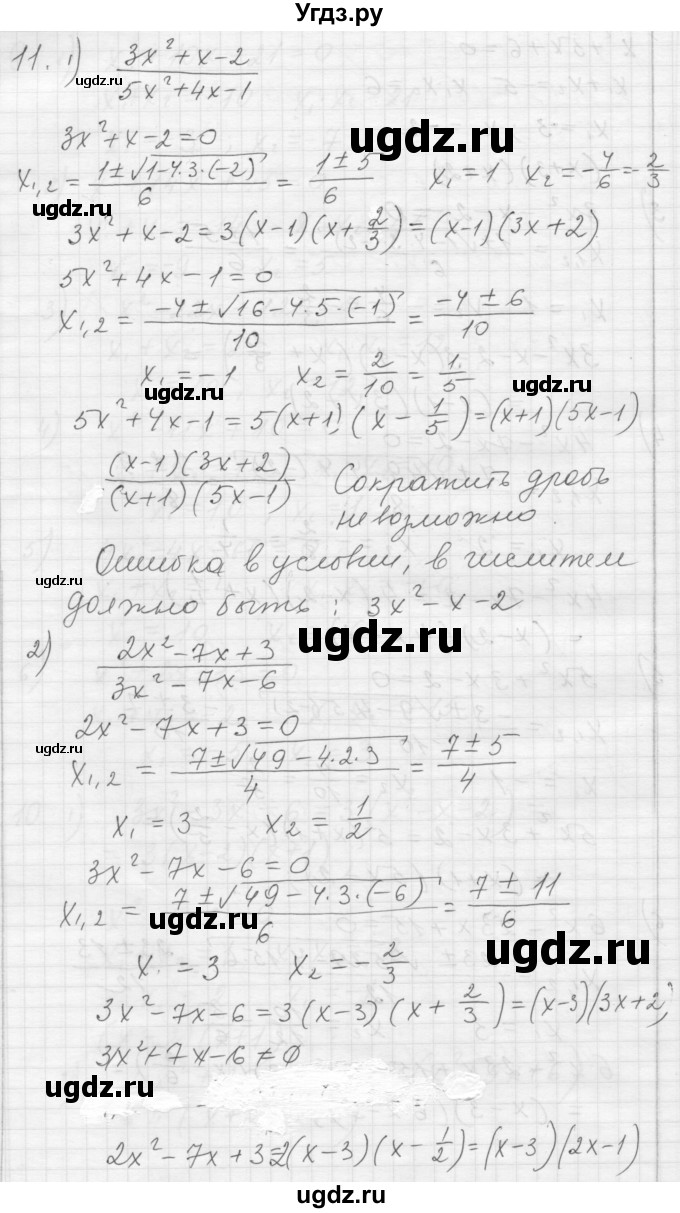 Угдз.ру
11. 1) (3x²+x-2)/(5x²+4x-1)
ugdz.ru
3x²+x-2=0
ugdz.ru
x₁,₂ = (1±√(1-4·3·(-2)))/6 = (1±5)/6 x₁=1 x₂=-4/6=-2/3
ugdz.ru ugdz.ru
3x²+x-2=3(x-1)(x+2/3)=(x-1)(3x+2)
5x²+4x-1=0
x₁,₂ = (-4±√(16-4·5·(-1)))/10 = (-4±6)/10
x₁=-1 x₂=2/10=1/5
ugdz.ru ugdz.ru
5x²+4x-1=5(x+1)(x-1/5)=(x+1)(5x-1)
((x-1)(3x+2))/((x+1)(5x-1)) Сократить дробь
невозможно.
ugdz.ru
Ошибка в условии, в числителе
должно быть: 3x²-x-2
ugdz.ru
2) (2x²-7x+3)/(3x²-7x-6)
2x²-7x+3=0
ugdz.ru
x₁,₂ = (7±√(49-4·2·3))/4 = (7±5)/4
ugdz.ru
x₁=3 x₂=1/2
3x²-7x-6=0
x₁,₂ = (7±√(49-4·3·(-6)))/6 = (7±11)/6
ugdz.ru
ugdz.ru
x₁=3 x₂=-2/3
3x²-7x-6=3(x-3)(x+2/3)=(x-3)(3x+2)
3x²+7x-6≠0
ugdz.ru ugdz.ru
2x²-7x+3=2(x-3)(x-1/2)=(x-3)(2x-1)
ugdz.ru
ugdz.ru